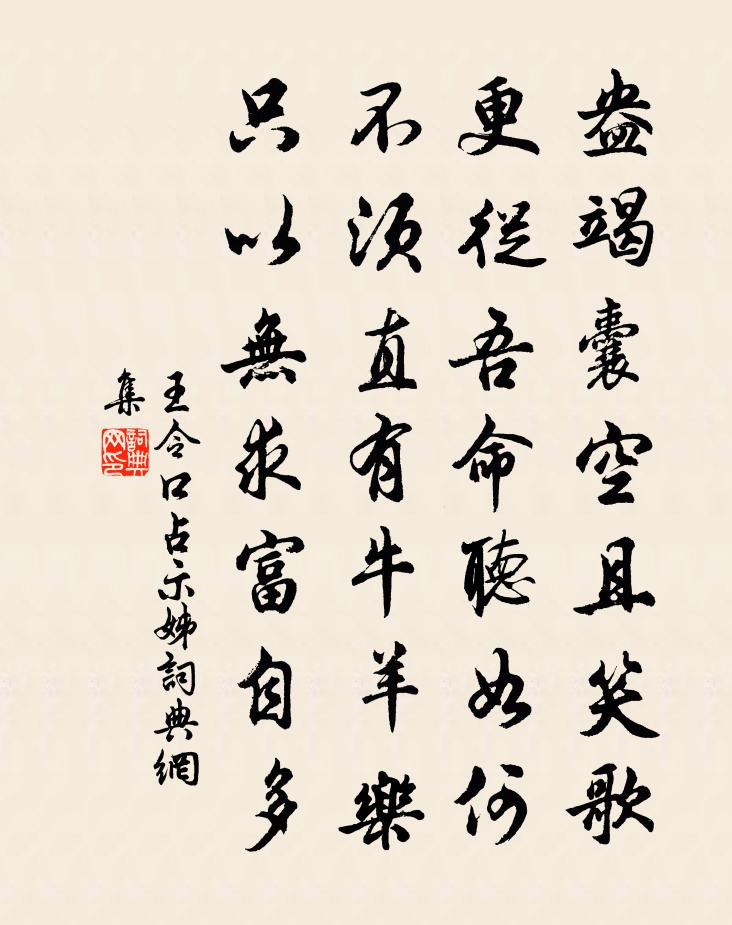 盎竭囊空且笑歌
更從吾命聽如何
不須直有牛羊樂
只以無求富自多
王令口占示姊詞典網
集
詞典網印